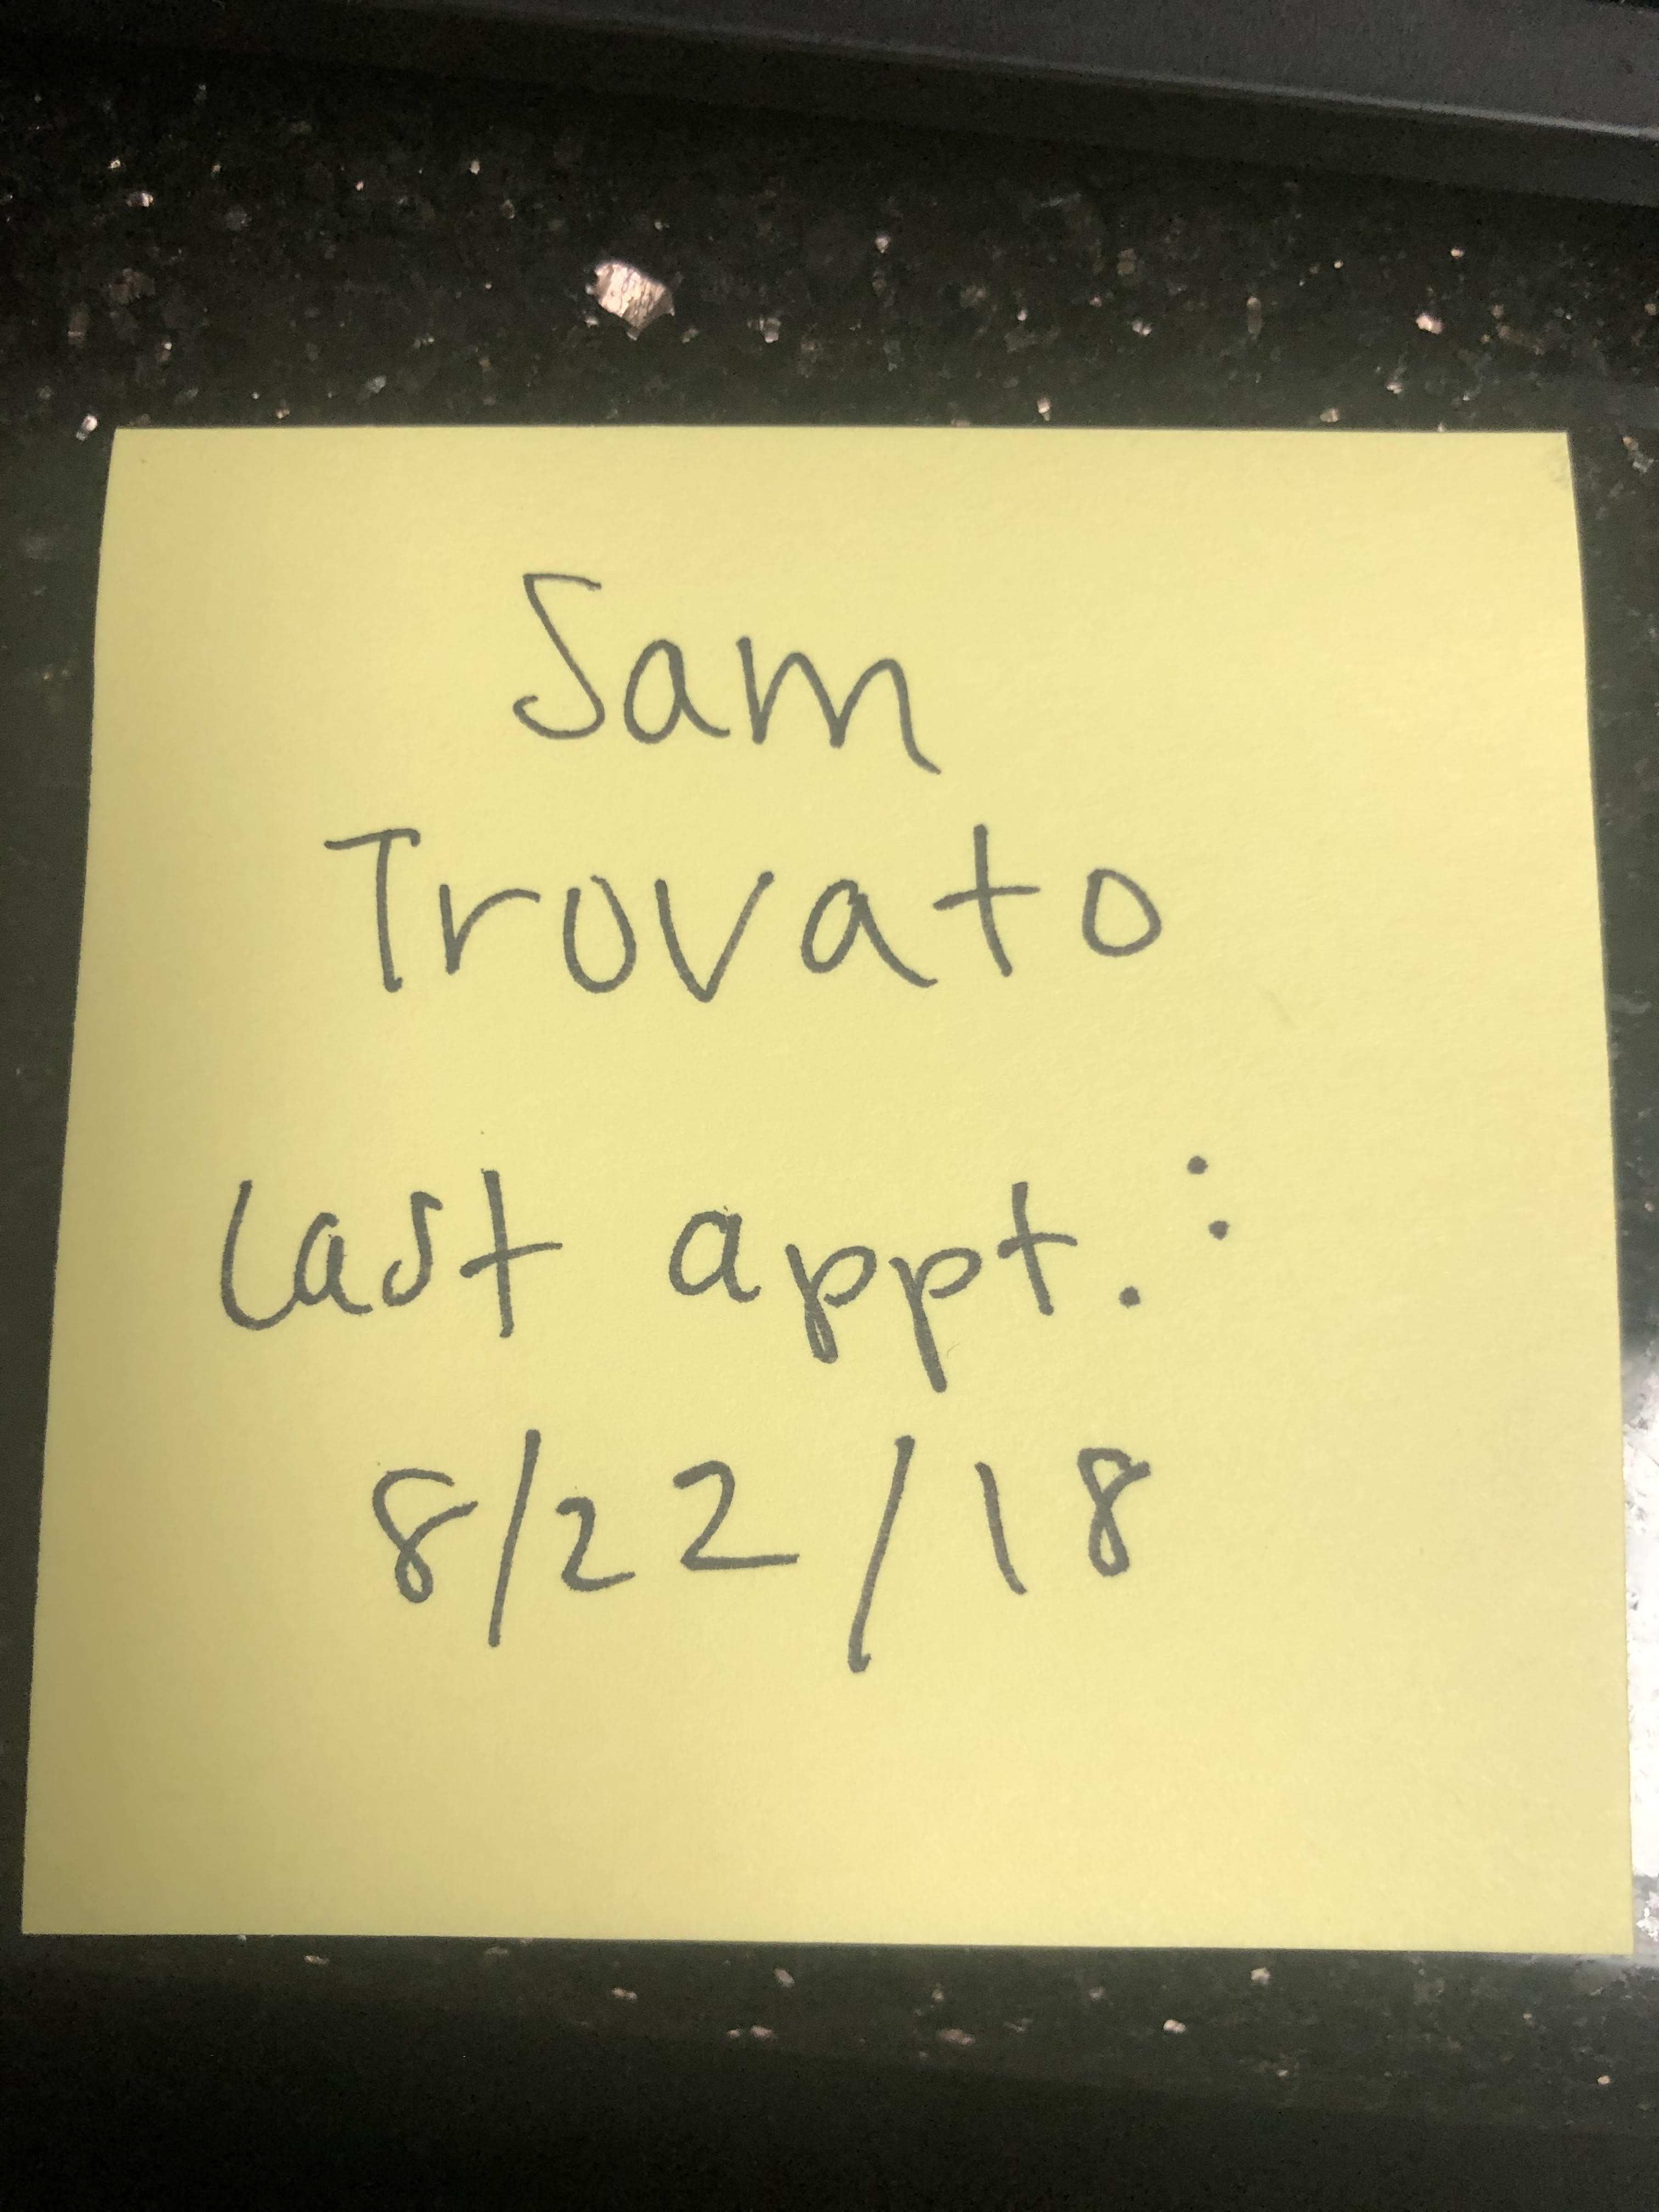 Sam
Trovato
Last appt.:
8/22/18